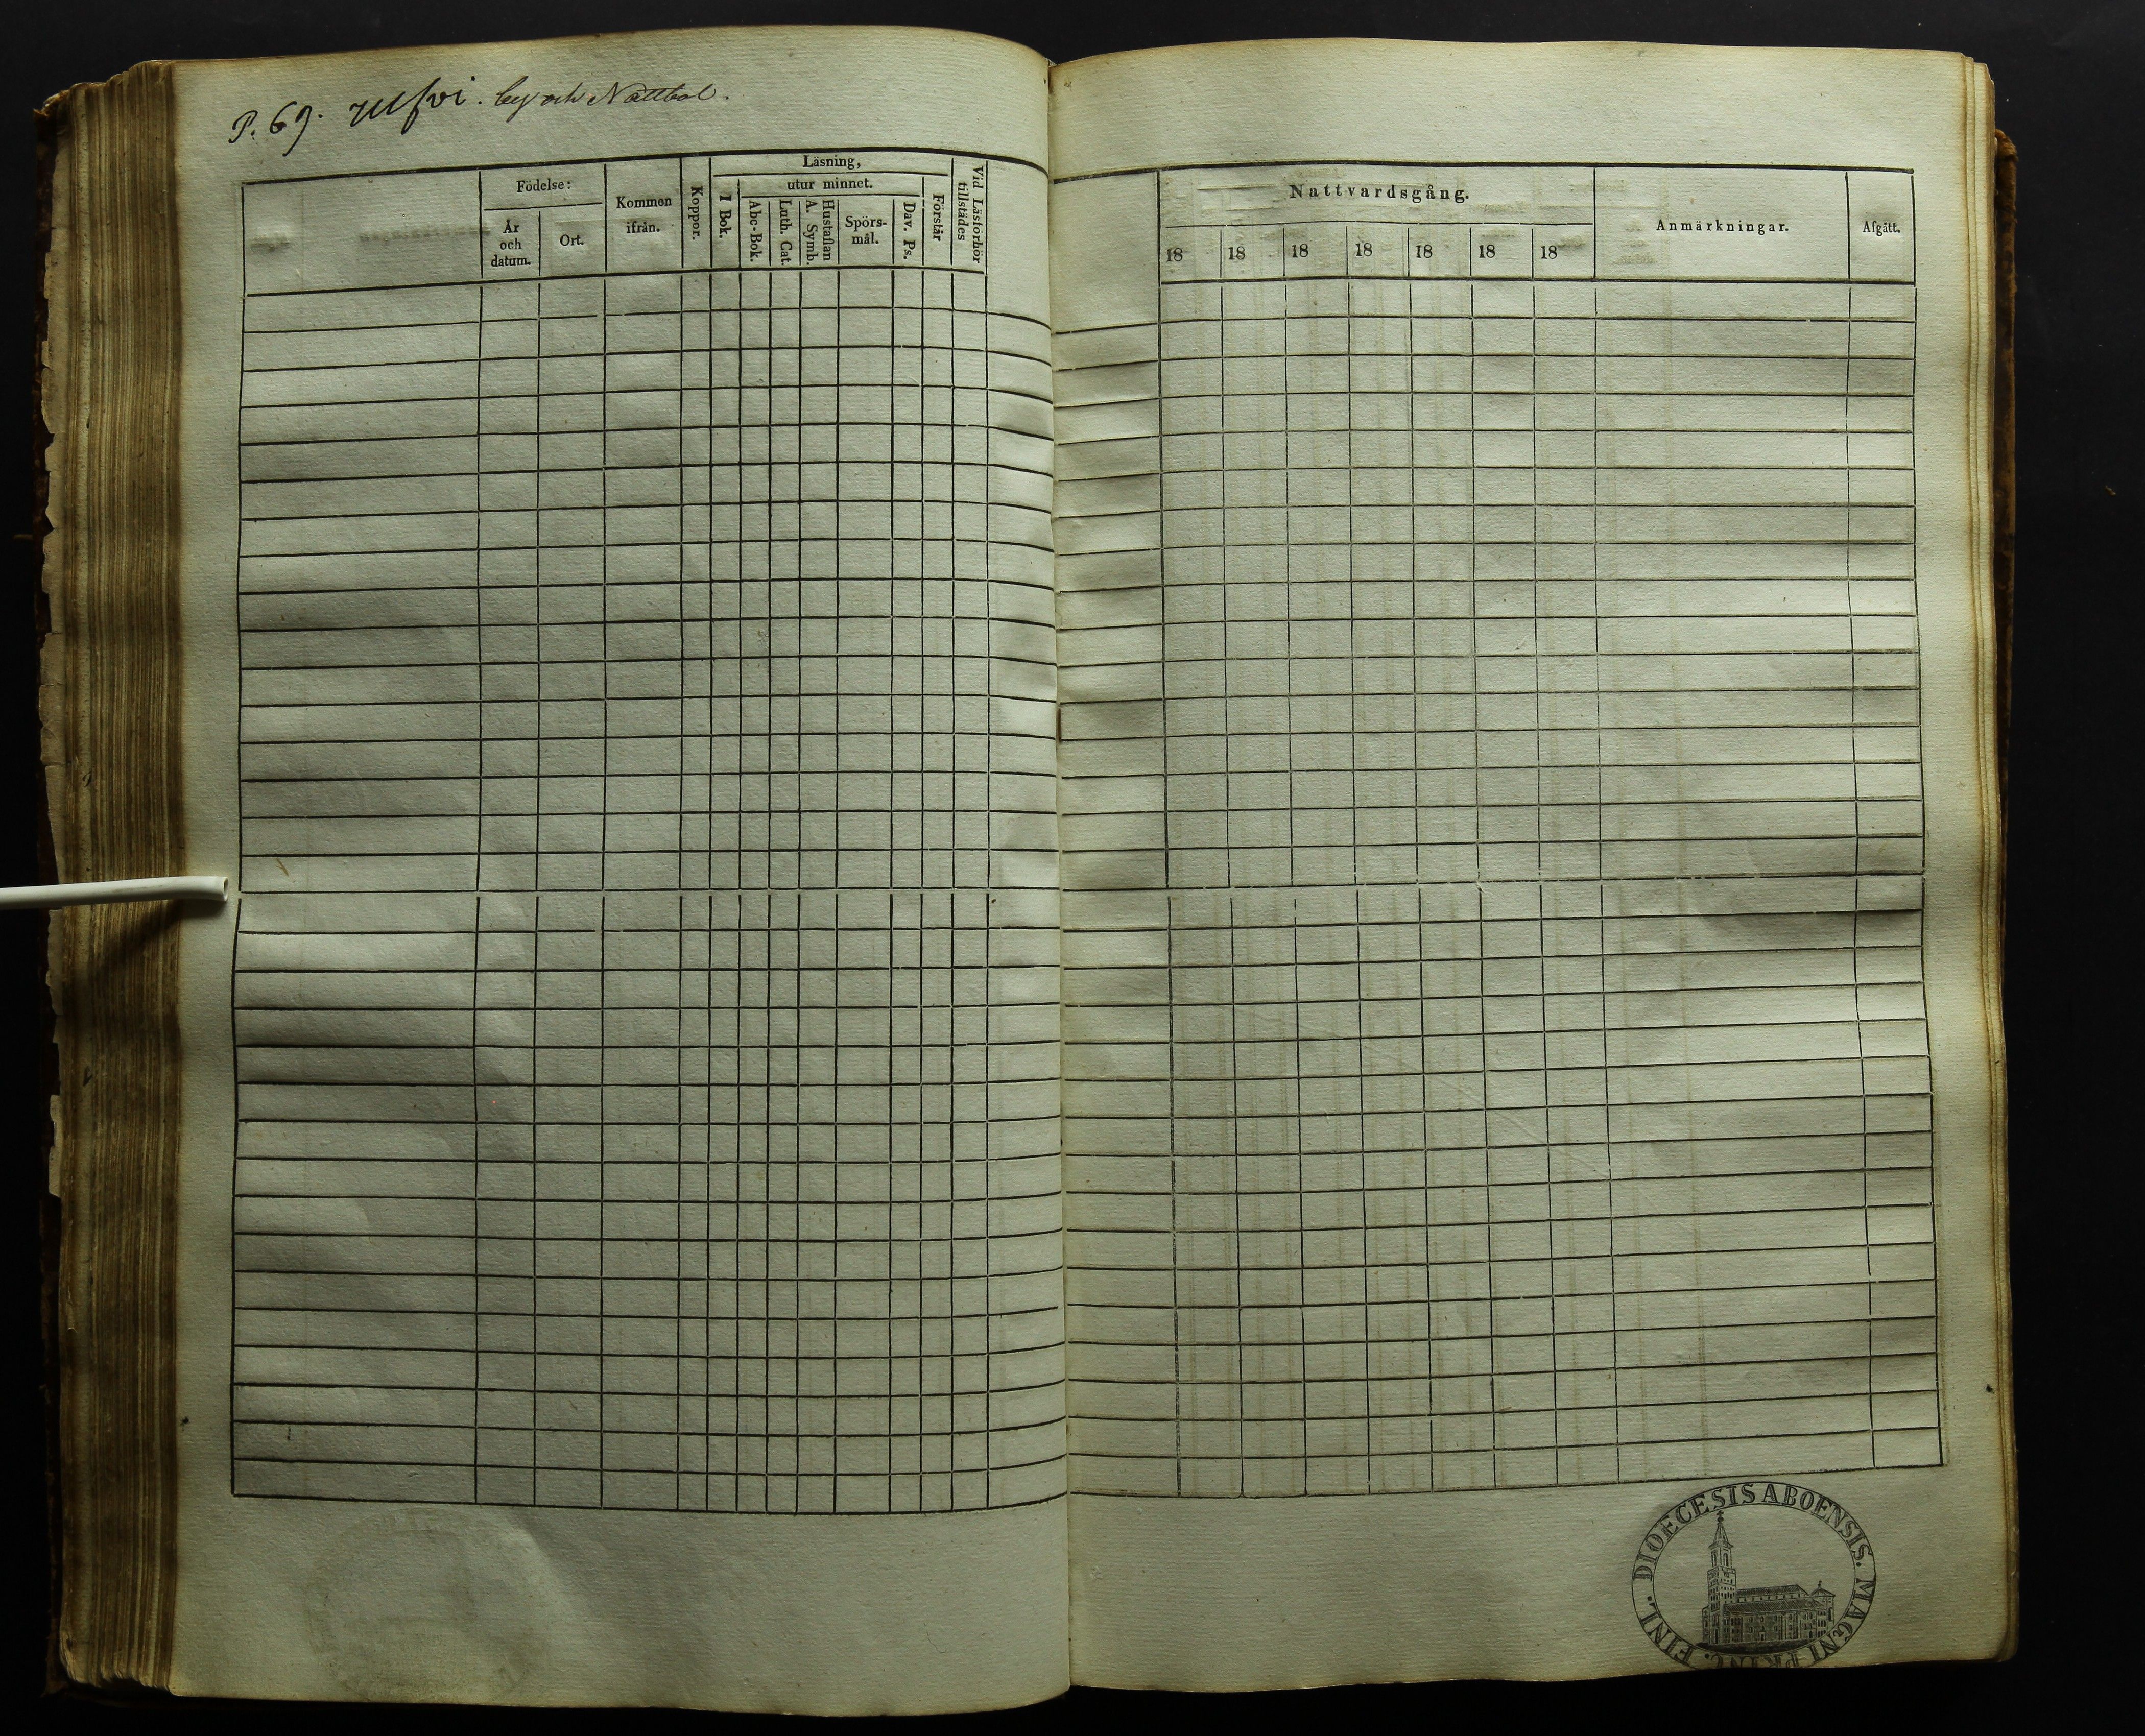 P. 69. by och Nattbol.
Födelse:
År
och
datum.
Ort.
Kommen
ifrån.
Koppor.
Läsning,
utur minnet.
I Bok.
Abc-Bok.
Luth. Cat.
Hustaflan
A. Symb.
Spörs-
mål.
Dav. Ps.
Förstår
Vid Läsförhör
tillstädes
Nattvardsgång.
18 18 18 18 18 18 18
Anmärkningar.
Afgått.
DIOECESIS ABOENSIS. MAGNI PRINC. FINL.